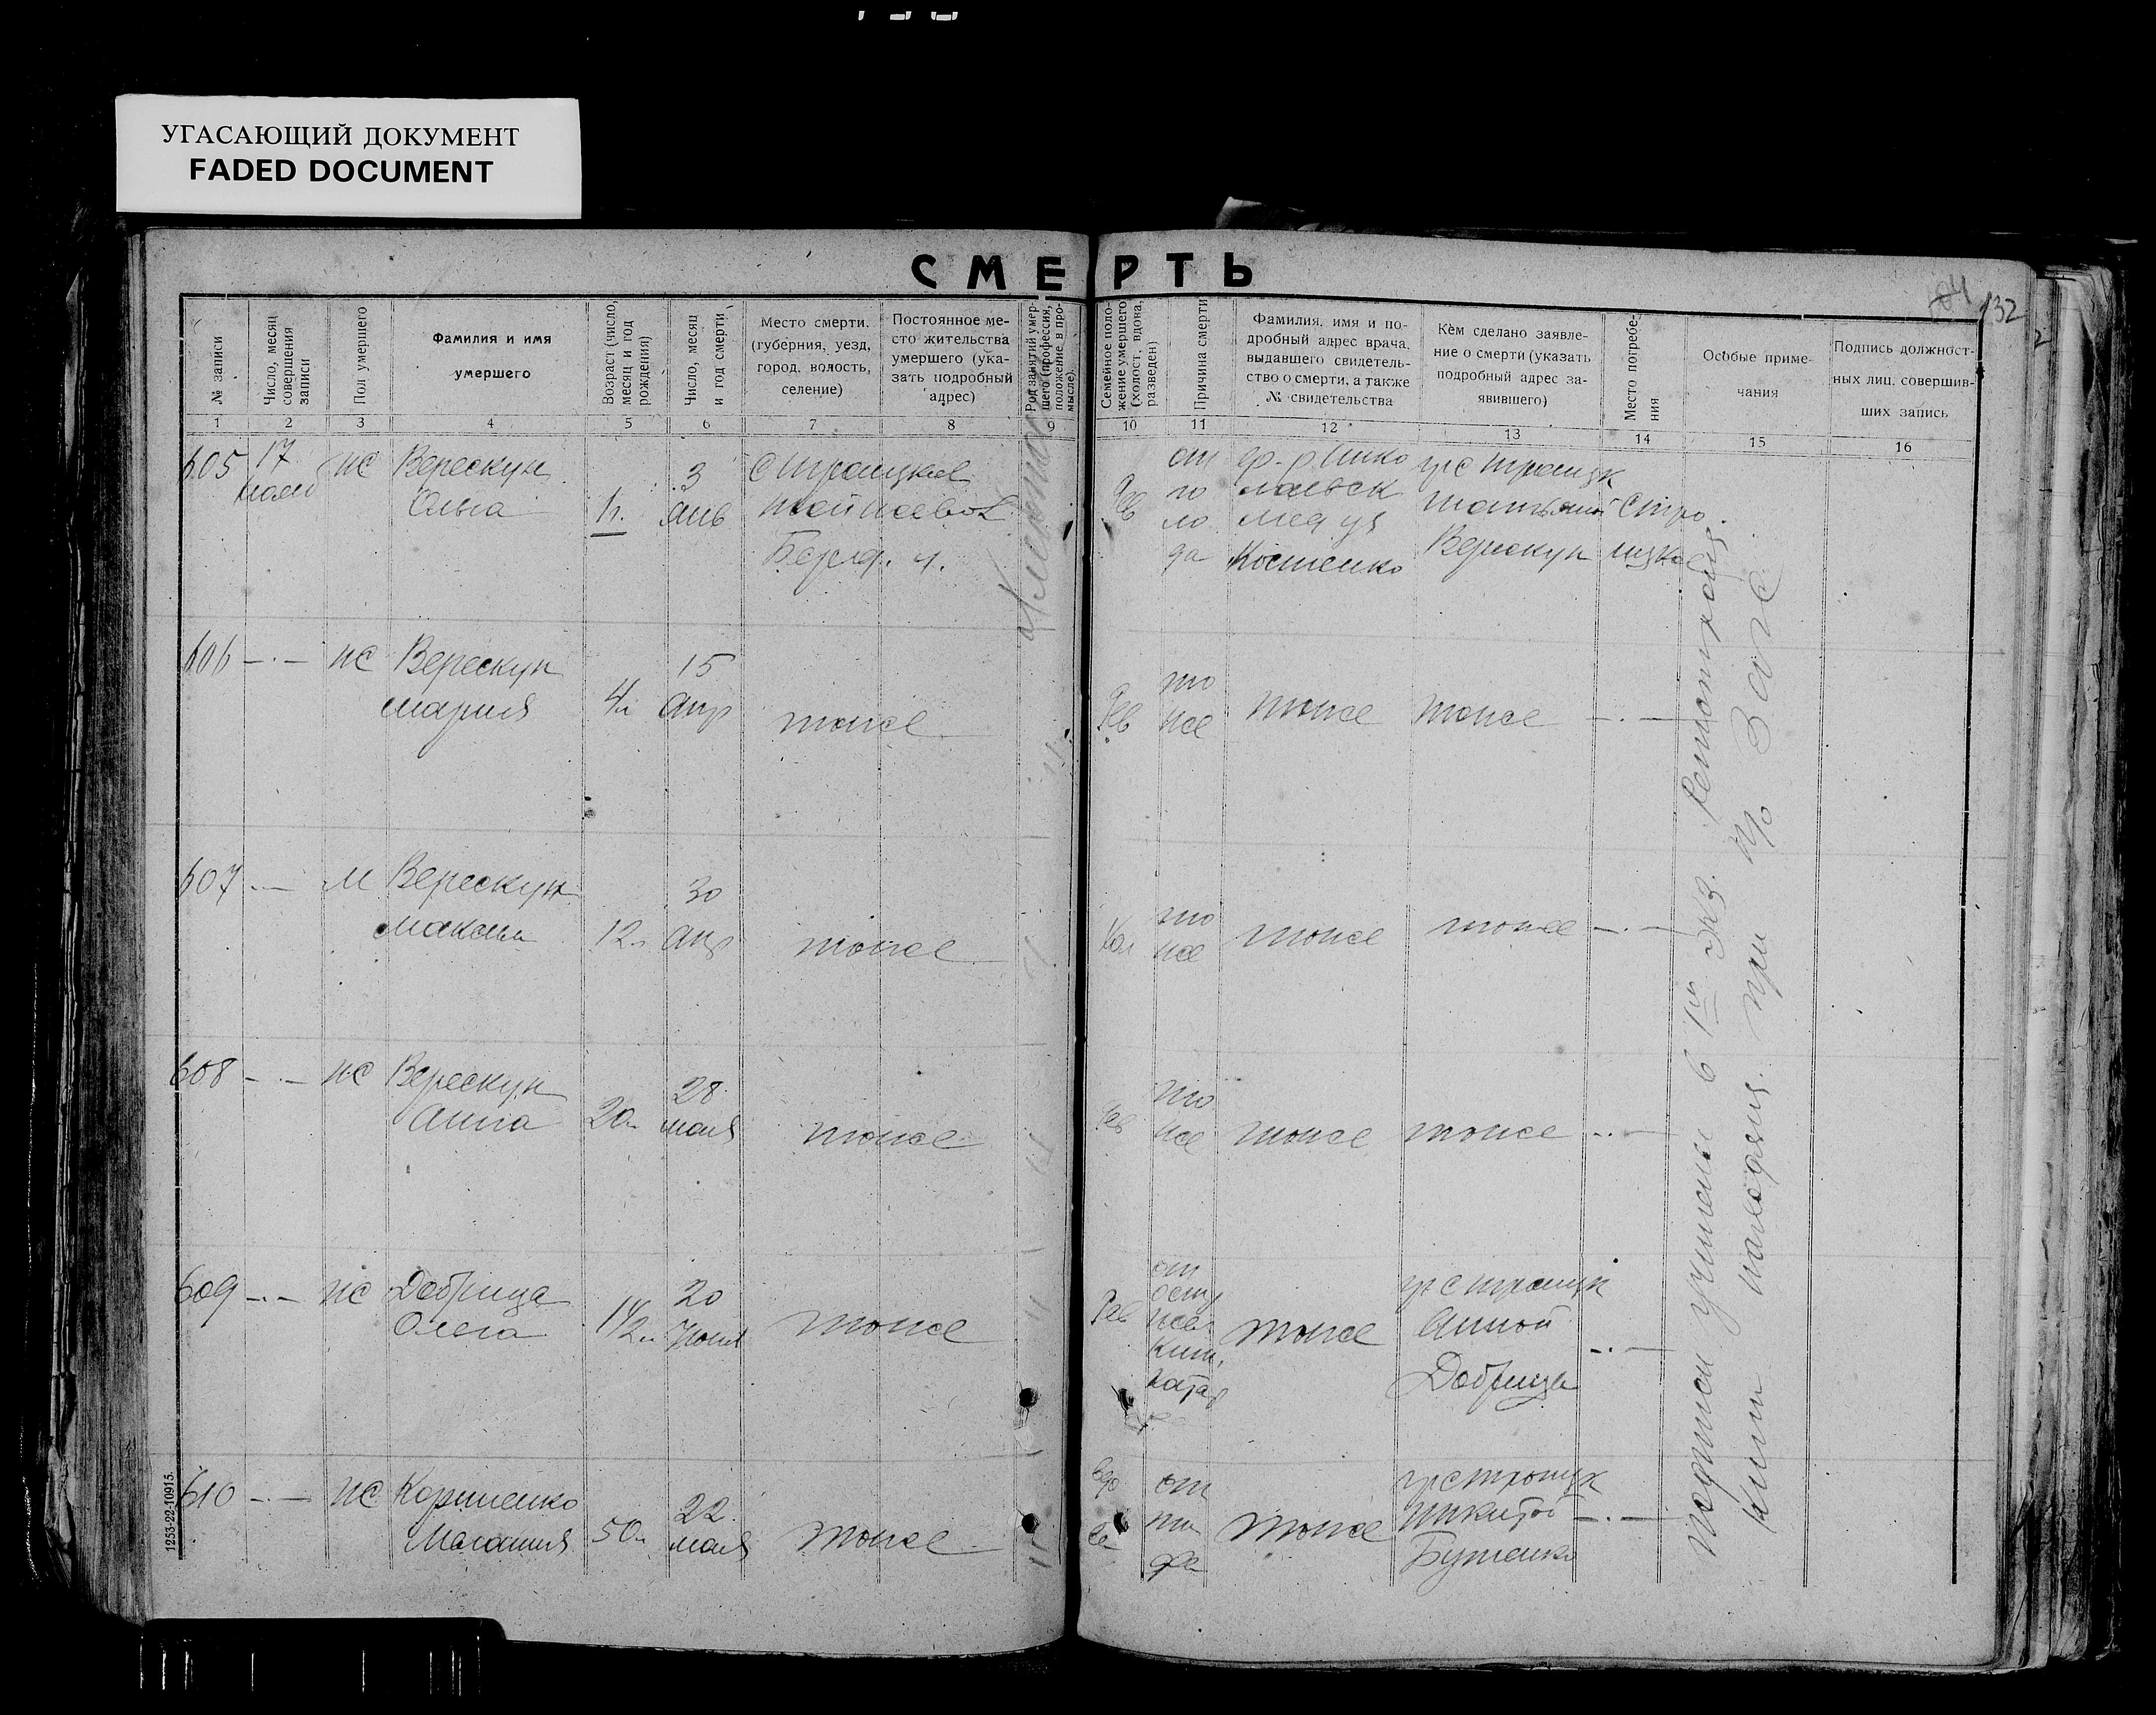 УГАСАЮЩИЙ ДОКУМЕНТ
FADED DOCUMENT
СМЕРТЬ
132
№ записи
Число, месяц совершения записи
Пол умершего
Фамилия и имя умершего
Возраст (число, месяц и год рождения)
Число, месяц и год смерти
Место смерти. (губерния, уезд, город, волость, селение)
Постоянное место жительства умершего (указать подробный адрес)
Род занятий умершего (профессия, положение в промысле).
Семейное положение умершего (холост, вдова, разведен)
Причина смерти
Фамилия, имя и подробный адрес врача, выдавшего свидетельство о смерти, а также № свидетельства
Кем сделано заявление о смерти (указать подробный адрес заявившего)
Место погребения
Особые примечания
Подпись должностных лиц, совершивших запись
1 2 3 4 5 6 7 8 9 10 11 12 13 14 15 16
605 17 ж Верескун Ольга 3 янв с Троицкое Берд. Дев от голода Костенко гр с Троицк Верескун
606 -·- ж Верескун Мария 4л 15 апр тоже Дев тоже тоже тоже -·-
607 -·- м Верескун Максим 12л 30 апр тоже Хол тоже тоже тоже -·-
608 -·- ж Верескун Анна 20л 28 мая тоже Дев тоже тоже тоже -·-
609 -·- ж Добрица Олена 1 1/2 20 Июня тоже Дев от ост. жел. киш. катар тоже гр с Троицк Анной Добрица -·-
610 -·- ж Корниенко Малания 50л 22 мая тоже вдова от тифа тоже гр с Троицк Никитой Бутенко -·-
Подписи учинены в 1м экз.
книги находящ. при
1253-22-10915.